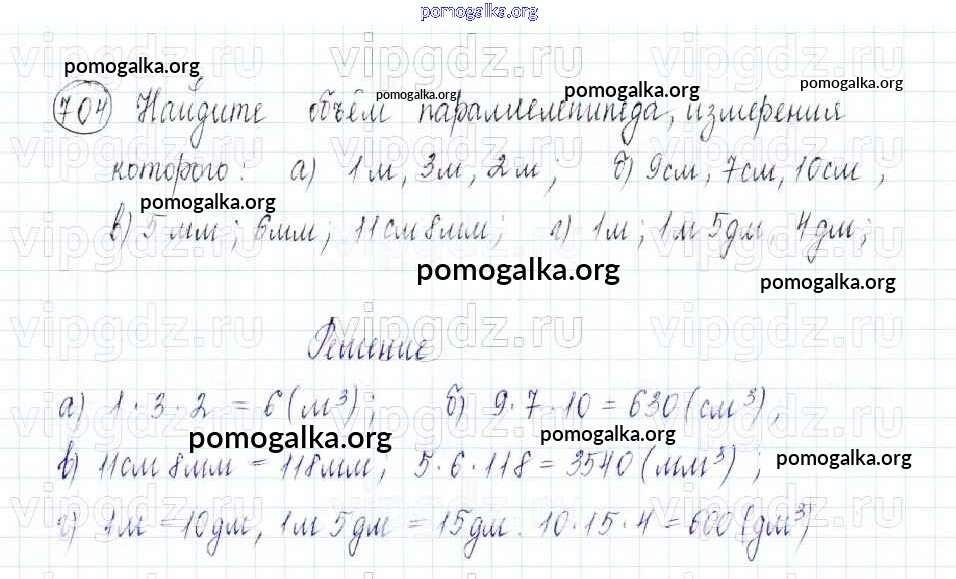 pomogalka.org
vipgdz.ru vipgdz.ru vipgdz.ru
pomogalka.org pomogalka.org pomogalka.org pomogalka.org
704) Найдите объём параллелепипеда, измерения
которого: а) 1м, 3м, 2м; б) 9см, 7см, 10см;
pomogalka.org
в) 5 мм; 6мм; 11см 8мм; г) 1м; 1м 5дм, 4дм;
pomogalka.org pomogalka.org
vipgdz.ru vipgdz.ru vipgdz.ru
Решение
а) 1·3·2 = 6(м³); б) 9·7·10 = 630(см³),
pomogalka.org pomogalka.org pomogalka.org
в) 11см 8мм = 118мм, 5·6·118 = 3540(мм³);
г) 1м = 10дм, 1м 5дм = 15дм. 10·15·4 = 600(дм³)